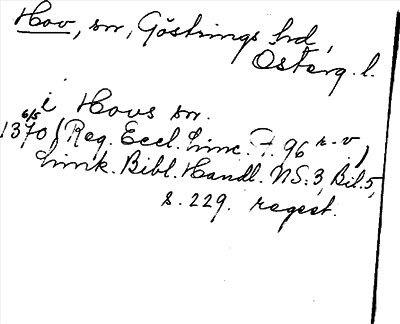 Hov, sn, Göstrings hd,
Österg. l.
i Hovs sn.
6/5
1370 (Reg. Eccl. Linc. f. 96 r-v,
Link. Bibl. Handl. NS: 3, Bil. 5,
s. 229. regest.